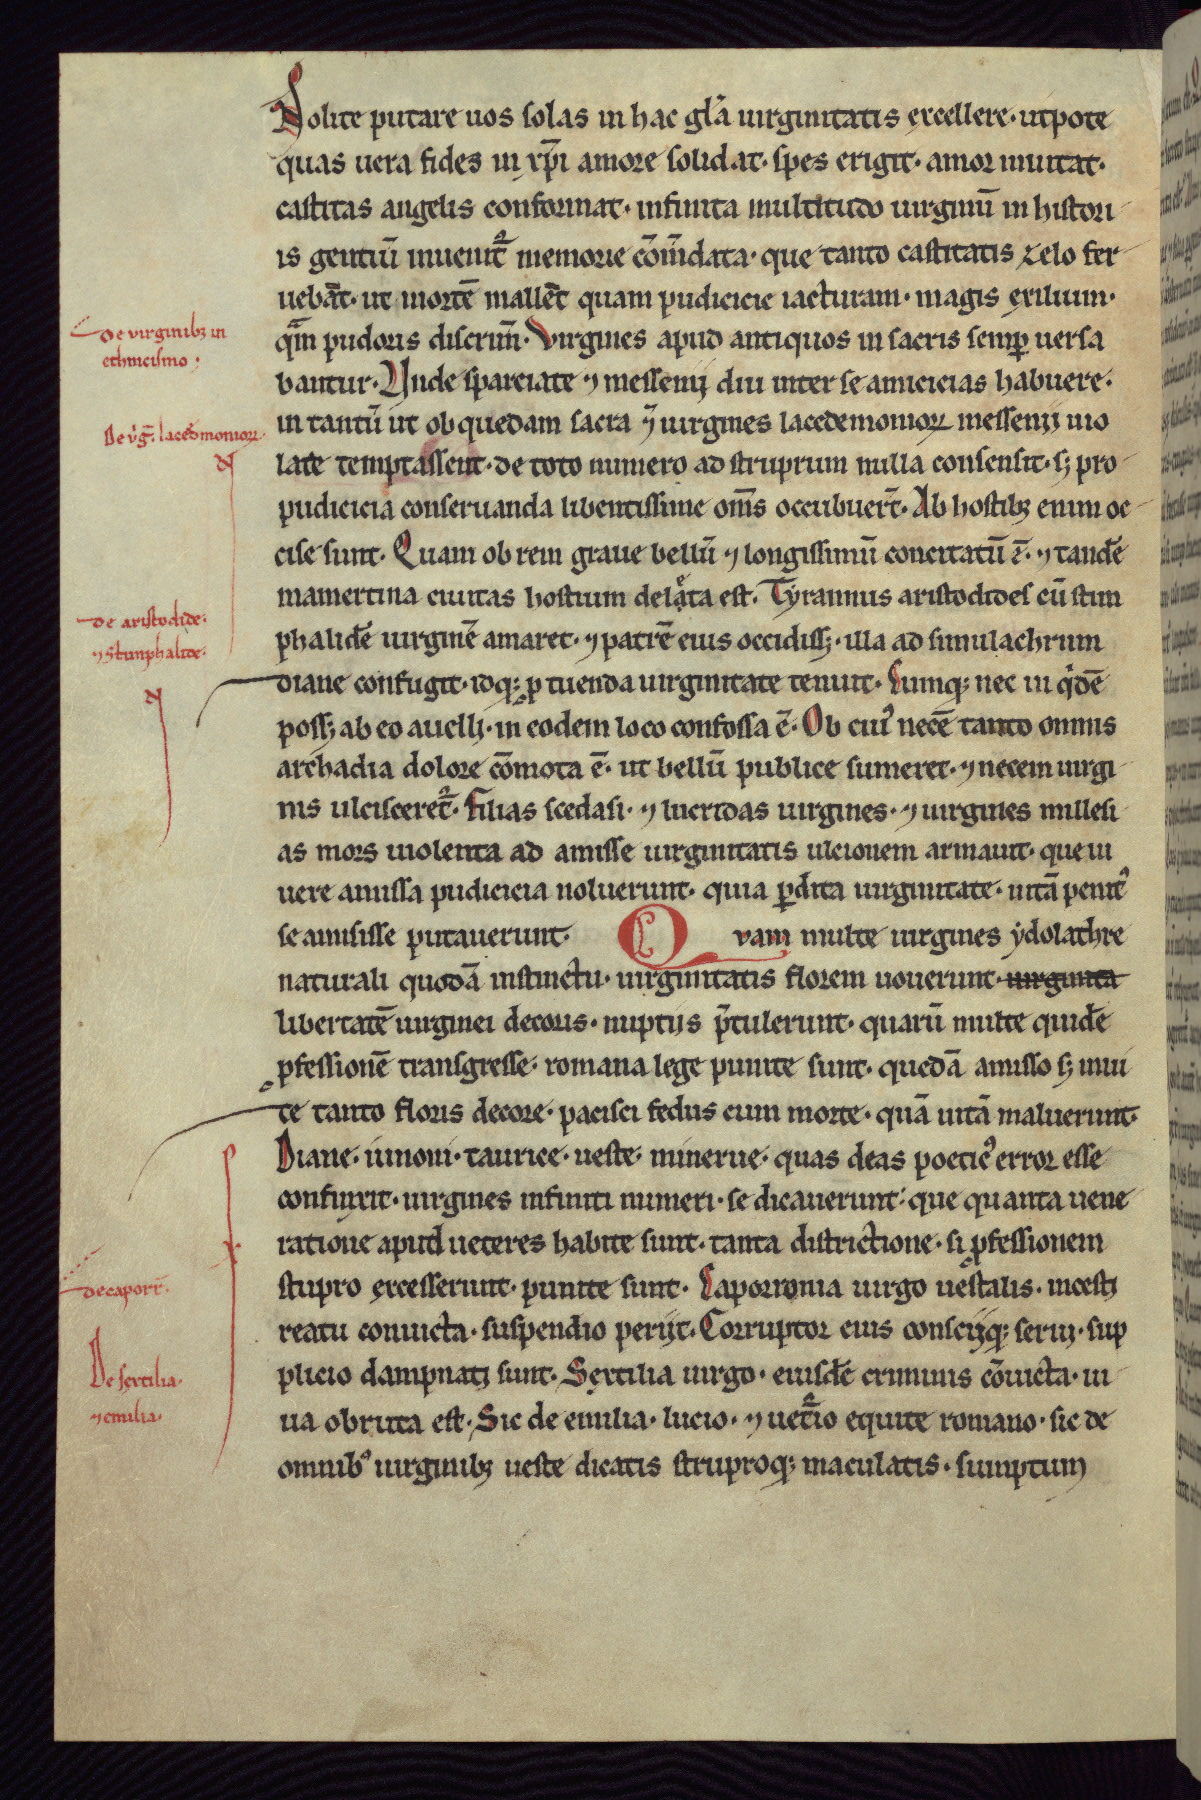 Nolite putare uos solas in hac gl̃a uirginitatis excellere· utpote
quas uera fides in xp̃i amore solidat· spes erigit· amor inuitat·
castitas angelis conformat· infinita multitudo uirginũ in histori
is gentiũ inuenit᷑ memorie cõm̃data· que tanto castitatis zelo fer
uebãt· ut mortẽ mallẽt quam pudicicie iacturam· magis exilium·
q̃m pudoris discrim̃· Virgines apud antiquos in sacris semꝑ uersa
bantur· Vnde sparciate ⁊ messenij diu inter se amicicias habuere·
in tantũ ut ob quedam sacra ⁊̃ uirgines lacedemonioꝝ messenij uio
late temptassent· de toto numero ad struprum nulla consensit· sꝫ pro
pudicicia conseruanda libentissime om̃s occubuer̃t· Ab hostibꝫ enim oc
cise sunt· Quam ob rem graue bellũ ⁊ longissimũ concitatũ ẽ· ⁊ tandẽ
mamertina ciuitas hostium delata est· Tyrannus aristodides cũ stim
phalidẽ uirginẽ amaret· ⁊ patrẽ eius occidissꝫ· illa ad simulachrum
diane confugit· idqꝫ ꝓ tuenda uirginitate tenuit· Cumqꝫ nec in q̾dẽ
possꝫ ab eo auelli· in eodem loco confossa ẽ· Ob cuiꝰ necẽ tanto omnis
archadia dolore cõmota ẽ· ut bellũ publice sumeret· ⁊ necem uirgi
nis ulcisceret᷑· Filias scedasi· ⁊ lucridas uirgines· ⁊ uirgines millesi
as mors uiolenta ad amisse uirginitatis ulcionem armauit· que ui
uere amissa pudicicia noluerunt· quia ꝑdita uirginitate· uitã penitꝰ
se amisisse putauerunt· Qvam multe uirgines ydolathre
naturali quodã instinctu· uirginitatis florem uouerunt· uirginita
libertatẽ uirginei decoris· nuptijs p̃tulerunt· quarũ multe quidẽ
ꝓfessionẽ transgresse· romana lege punite sunt· quedã amisso sꝫ inui
te tanto floris decore· pacisci fedus cum morte· quã uitã maluerunt·
Diane· iunoni· taurice· ueste· minerue· quas deas poeticꝰ error esse
confinxit· uirgines infiniti numeri· se dicauerunt· que quanta uene
ratione apud ueteres habite sunt· tanta districtione· si ꝓfessionem
stupro excesserunt· punite sunt· Caporronia uirgo uestalis· incesti
reatu conuicta· suspendio perijt· Corruptor eius conscijqꝫ serui· sup
plicio dampnati sunt· Sextilia uirgo· eiusdẽ criminis cõuicta· ui
ua obruta est· Sic de emilia· lucio· ⁊ uet̃io equite romano· sic de
omnibꝰ uirginibꝫ ueste dicatis struproqꝫ maculatis· sumptum
De virginibꝫ in
ethnicismo·
De v̾g̃· lacedemonioꝝ
de aristodide·
⁊ Stimphalide·
de caporr̃·
De sextilia·
⁊ emilia·